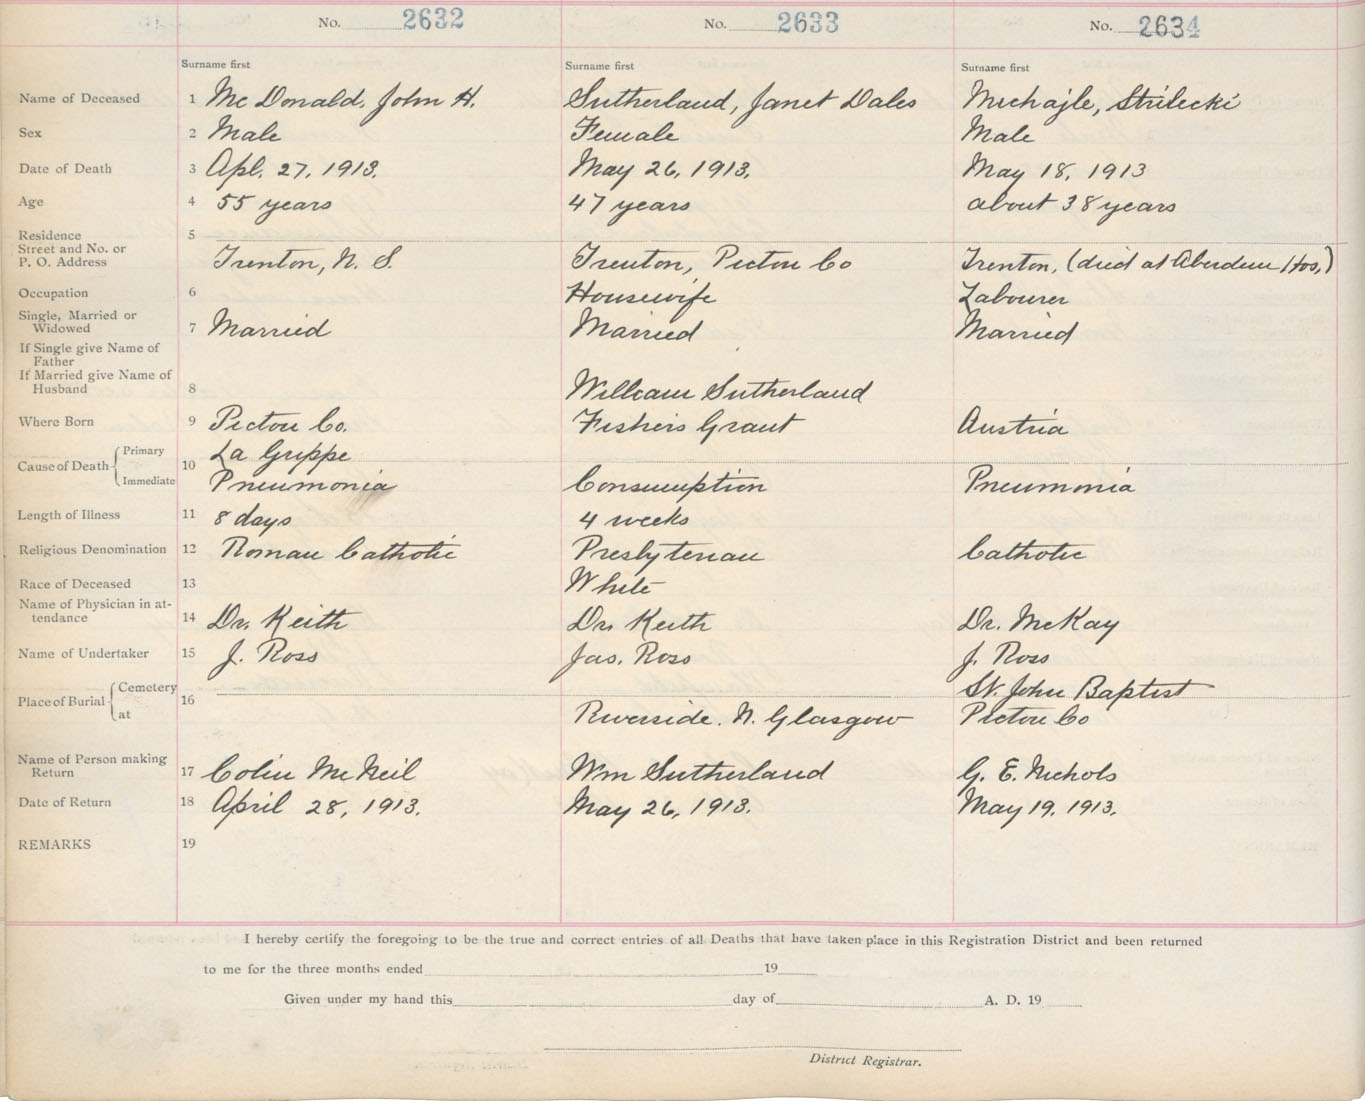 No. 2632 No. 2633 No. 2634
Surname first Surname first Surname first
Name of Deceased 1 Mc Donald, John H. Sutherland, Janet Dales Michajle, Strilecki
Sex 2 Male Female Male
Date of Death 3 Apl. 27, 1913. May 26, 1913. May 18, 1913
Age 4 55 years 47 years about 38 years
Residence 5
Street and No. or
P. O. Address Trenton, N. S. Trenton, Pictou Co Trenton, (died at Aberdeen Hos.)
Occupation 6 Housewife Labourer
Single, Married or
Widowed 7 Married Married Married
If Single give Name of
Father
If Married give Name of
Husband 8 William Sutherland
Where Born 9 Pictou Co. Fishers Grant Austria
Cause of Death Primary 10 La Grippe
Immediate Pneumonia Consumption Pneumonia
Length of Illness 11 8 days 4 weeks
Religious Denomination 12 Roman Catholic Presbyterian Catholic
Race of Deceased 13 White
Name of Physician in at-
tendance 14 Dr. Keith Dr. Keith Dr. McKay
Name of Undertaker 15 J. Ross Jas. Ross J. Ross
Place of Burial Cemetery 16 St. John Baptist
at Riverside. N. Glasgow Pictou Co
Name of Person making
Return 17 Colin McNeil Wm Sutherland G. E. Nichols
Date of Return 18 April 28, 1913. May 26, 1913. May 19, 1913.
REMARKS 19
I hereby certify the foregoing to be the true and correct entries of all Deaths that have taken place in this Registration District and been returned
to me for the three months ended 19
Given under my hand this day of A. D. 19
District Registrar.